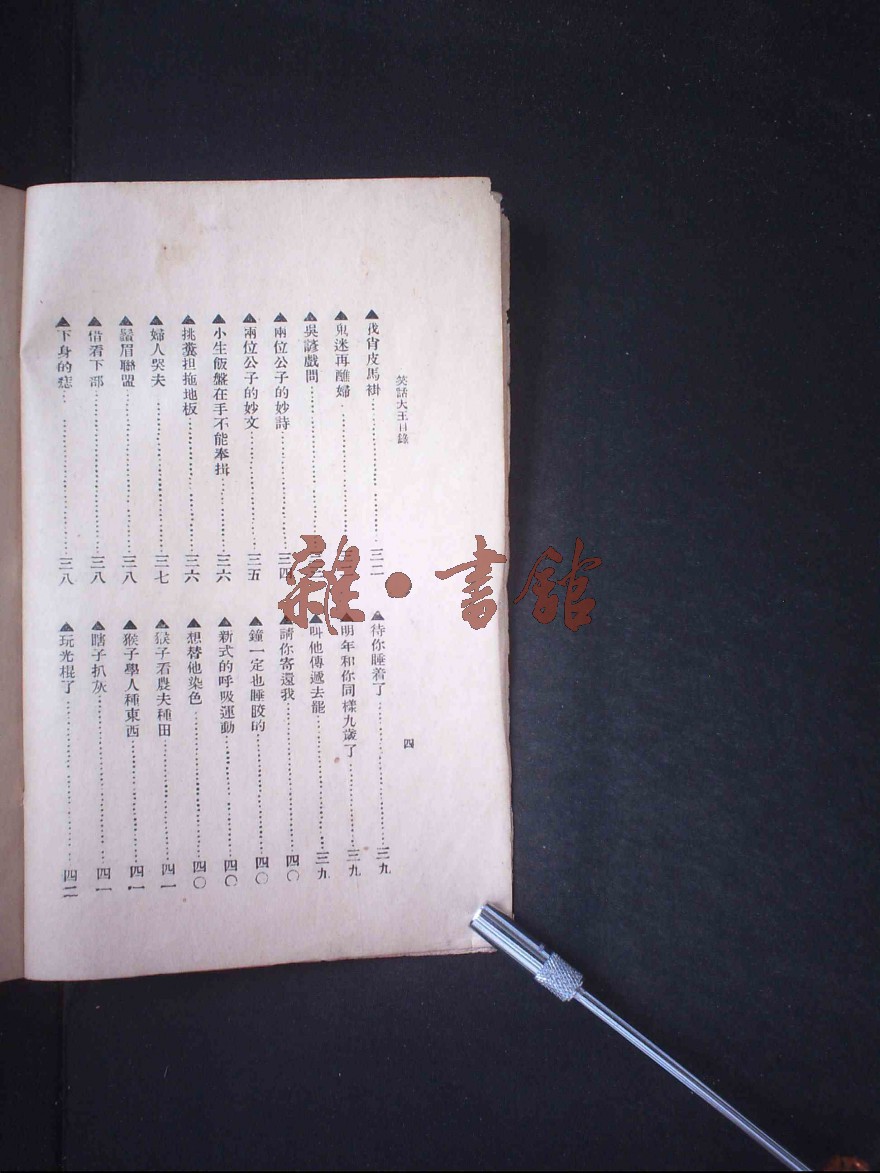 笑話大王目錄
四
▲我肯皮馬褂…………三二
▲鬼迷再醮婦…………
▲吳諺戲問…………
▲兩位公子的妙詩…………三四
▲兩位公子的妙文…………三五
▲小生飯盤在手不能奉揖…………三六
▲挑糞担拖地板…………三六
▲婦人哭夫…………三七
▲鬚眉聯盟…………三八
▲借看下部…………三八
▲下身的悲…………三八
▲待你睡着了…………三九
▲明年和你同樣九歲了…………三九
▲叫他傳遞去罷…………三九
▲請你寄還我…………四〇
▲鐘一定也睡膠的…………四〇
▲新式的呼吸運動…………四〇
▲想替他染色…………四〇
▲猴子看農夫種田…………四一
▲猴子學人種東西…………四一
▲瞎子扒灰…………四一
▲玩光棍了…………四二
雜·書館